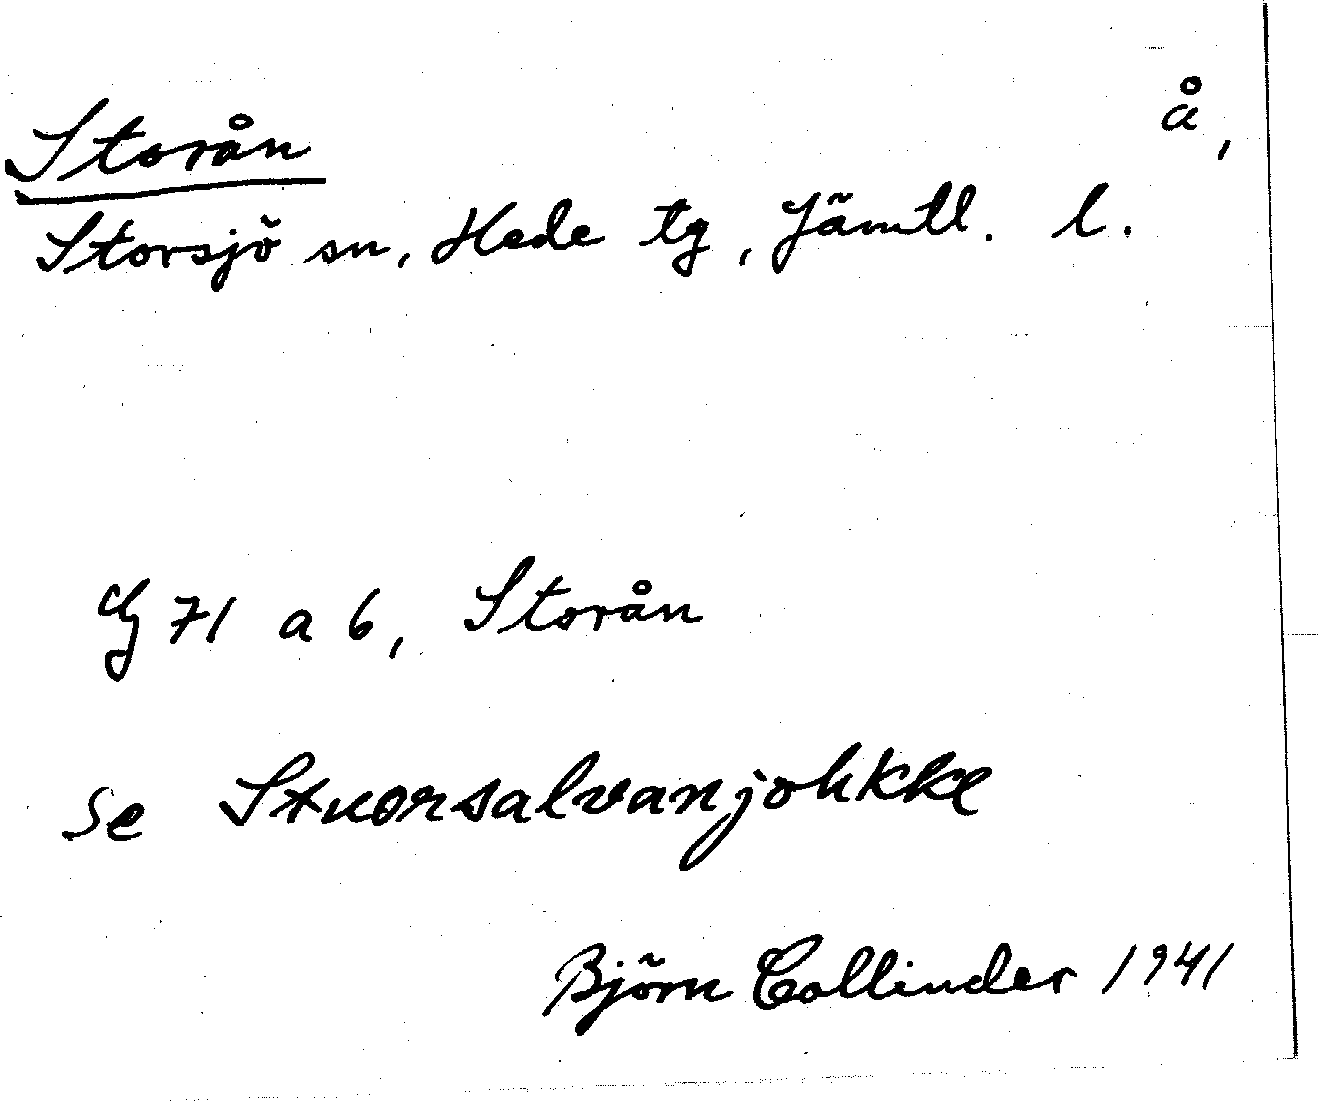 Storån å,
Storsjö sn, Hede tg, Jämtl. l.
Cg 71 a 6, Storån
Se Stuorsalvanjohkke
Björn Collinder 1941